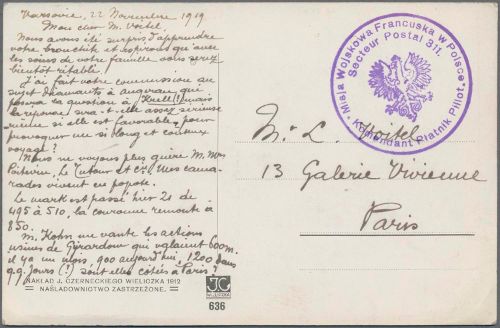 Varsovie, 22 Novembre 1919
Mon cher M. Voitel,
Nous avons été surpris d'apprendre
votre bronchite et espérons qu'avec
les soins de votre famille vous serez
bientôt rétabli!
J'ai fait votre commission au
sujet diamants à
posera la question à Knell(!) mais
la réponse sera-t-elle assez sérieuse
même si elle est favorable, pour
provoquer un si long et coûteux
voyage?
Nous ne voyons plus guère M. Mrs
Le Tutour et Cie. Mes cama-
rades vivent en popote.
Le mark est passé hier 21 de
495 à 510, la couronne remonte à
850.
M. Kohn me vante les actions
usines de Girardow qui valaient 600 m.
il y a un mois, 900 aujourd'hui, 1200 dans
qq. jours (!) sont elles cotées à Paris?
NAKŁAD J. CZERNECKIEGO WIELICZKA 1912
NAŚLADOWNICTWO ZASTRZEŻONE.
JC
WIELICZKA
636
Misja Wojskowa Francuska w Polsce
Secteur Postal 311.
Komendant Płatnik Pillot
Mr. L. Voitel
13 Galerie Vivienne
Paris